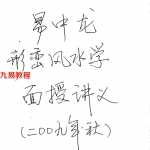 易中龙
形峦风水学
九易教程
面授讲义
(二00九年秋)